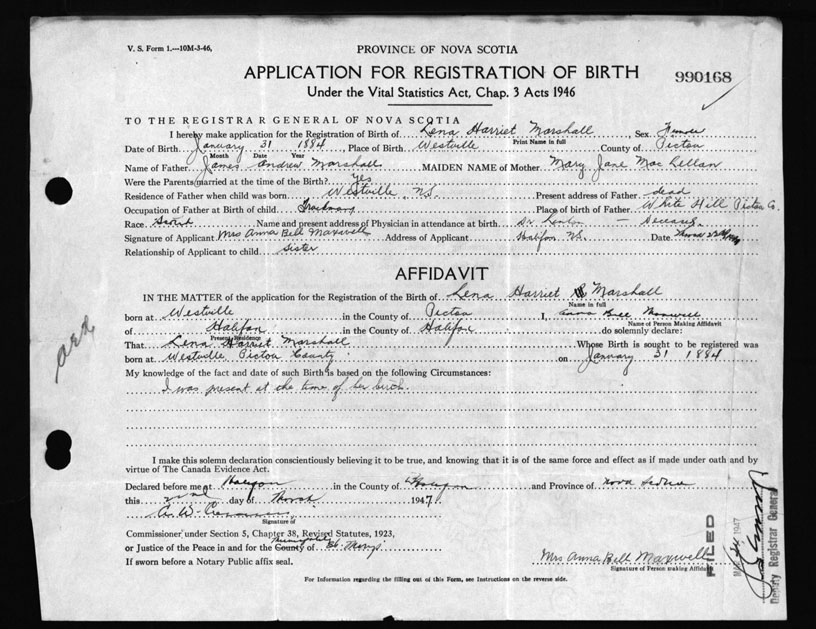 V. S. Form 1.—10M-3-46.
PROVINCE OF NOVA SCOTIA
APPLICATION FOR REGISTRATION OF BIRTH
990168
Under the Vital Statistics Act, Chap. 3 Acts 1946
TO THE REGISTRAR GENERAL OF NOVA SCOTIA
I hereby make application for the Registration of Birth of Lena Harriet Marshall, Sex Female
Print Name in full
Date of Birth January 31 1884, Place of Birth Westville County of Pictou
Month Date Year
Name of Father James Andrew Marshall MAIDEN NAME of Mother Mary Jane MacLellan
Were the Parents married at the time of the Birth? Yes
Residence of Father when child was born Westville, N.S. Present address of Father dead
Occupation of Father at Birth of child Place of birth of Father White Hill Pictou Co.
Race Name and present address of Physician in attendance at birth Dr — Deceased
Signature of Applicant Mrs Anna Bell Maxwell Address of Applicant Halifax N.S. Date
Relationship of Applicant to child Sister
AFFIDAVIT
IN THE MATTER of the application for the Registration of the Birth of Lena Harriet Marshall
Name in full
born at Westville in the County of Pictou I, Anna Bell Maxwell
Name of Person Making Affidavit
of Halifax in the County of Halifax do solemnly declare:
Present Residence
That Lena Harriet Marshall Whose Birth is sought to be registered was
born at Westville Pictou County on January 31 1884
My knowledge of the fact and date of such Birth is based on the following Circumstances:
I was present at the time of her birth.
I make this solemn declaration conscientiously believing it to be true, and knowing that it is of the same force and effect as if made under oath and by
virtue of The Canada Evidence Act.
Declared before me at Halifax in the County of Halifax and Province of Nova Scotia
this day of March 1947
Signature of
Commissioner under Section 5, Chapter 38, Revised Statutes, 1923,
or Justice of the Peace in and for the County of
If sworn before a Notary Public affix seal.
Mrs Anna Bell Maxwell
Signature of Person making Affidavit
For Information regarding the filling out of this Form, see Instructions on the reverse side.
FILED
1947
Deputy Registrar General